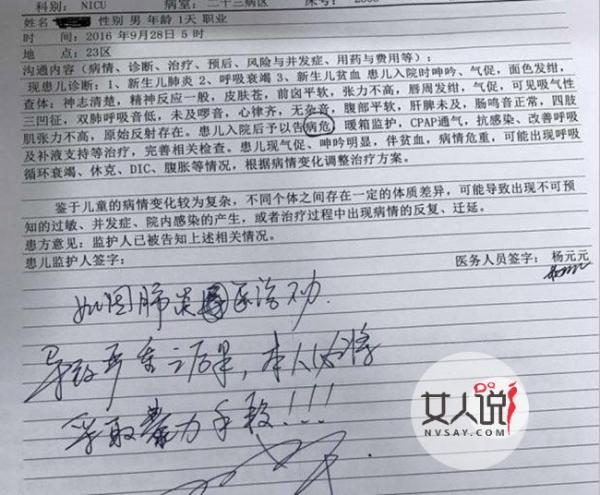 科别： NICU 病室：二十三病区 床号：
姓名 性别 男 年龄 1天 职业
时 间：2016 年9月28日 5 时
地 点：23区
沟通内容（病情、诊断、治疗、预后、风险与并发症、用药与费用等）：
现患儿诊断：1、新生儿肺炎 2、呼吸衰竭 3、新生儿贫血 患儿入院时呻吟、气促，面色发绀，
查体：神志清楚，精神反应一般，皮肤苍，前囟平软，张力不高，唇周发绀，气促，可见吸气性
三凹征，双肺呼吸音低，未及啰音，心律齐，无杂音，腹部平软，肝脾未及，肠鸣音正常，四肢
肌张力不高，原始反射存在。患儿入院后予以告病危，暖箱监护，CPAP通气，抗感染、改善呼吸
及补液支持等治疗，完善相关检查。患儿现气促、呻吟明显，伴贫血，病情危重，可能出现呼吸
循环衰竭、休克、DIC、腹胀等情况，根据病情变化调整治疗方案。
鉴于儿童的病情变化较为复杂，不同个体之间存在一定的体质差异，可能导致出现不可预
知的过敏、并发症、院内感染的产生，或者治疗过程中出现病情的反复、迁延。
患方意见：监护人已被告知上述相关情况。
患儿监护人签字： 医务人员签字：杨元元
如因肺炎医治不力
导致严重之后果，本人必将
采取暴力手段！！！
女人说
NVSAY.COM